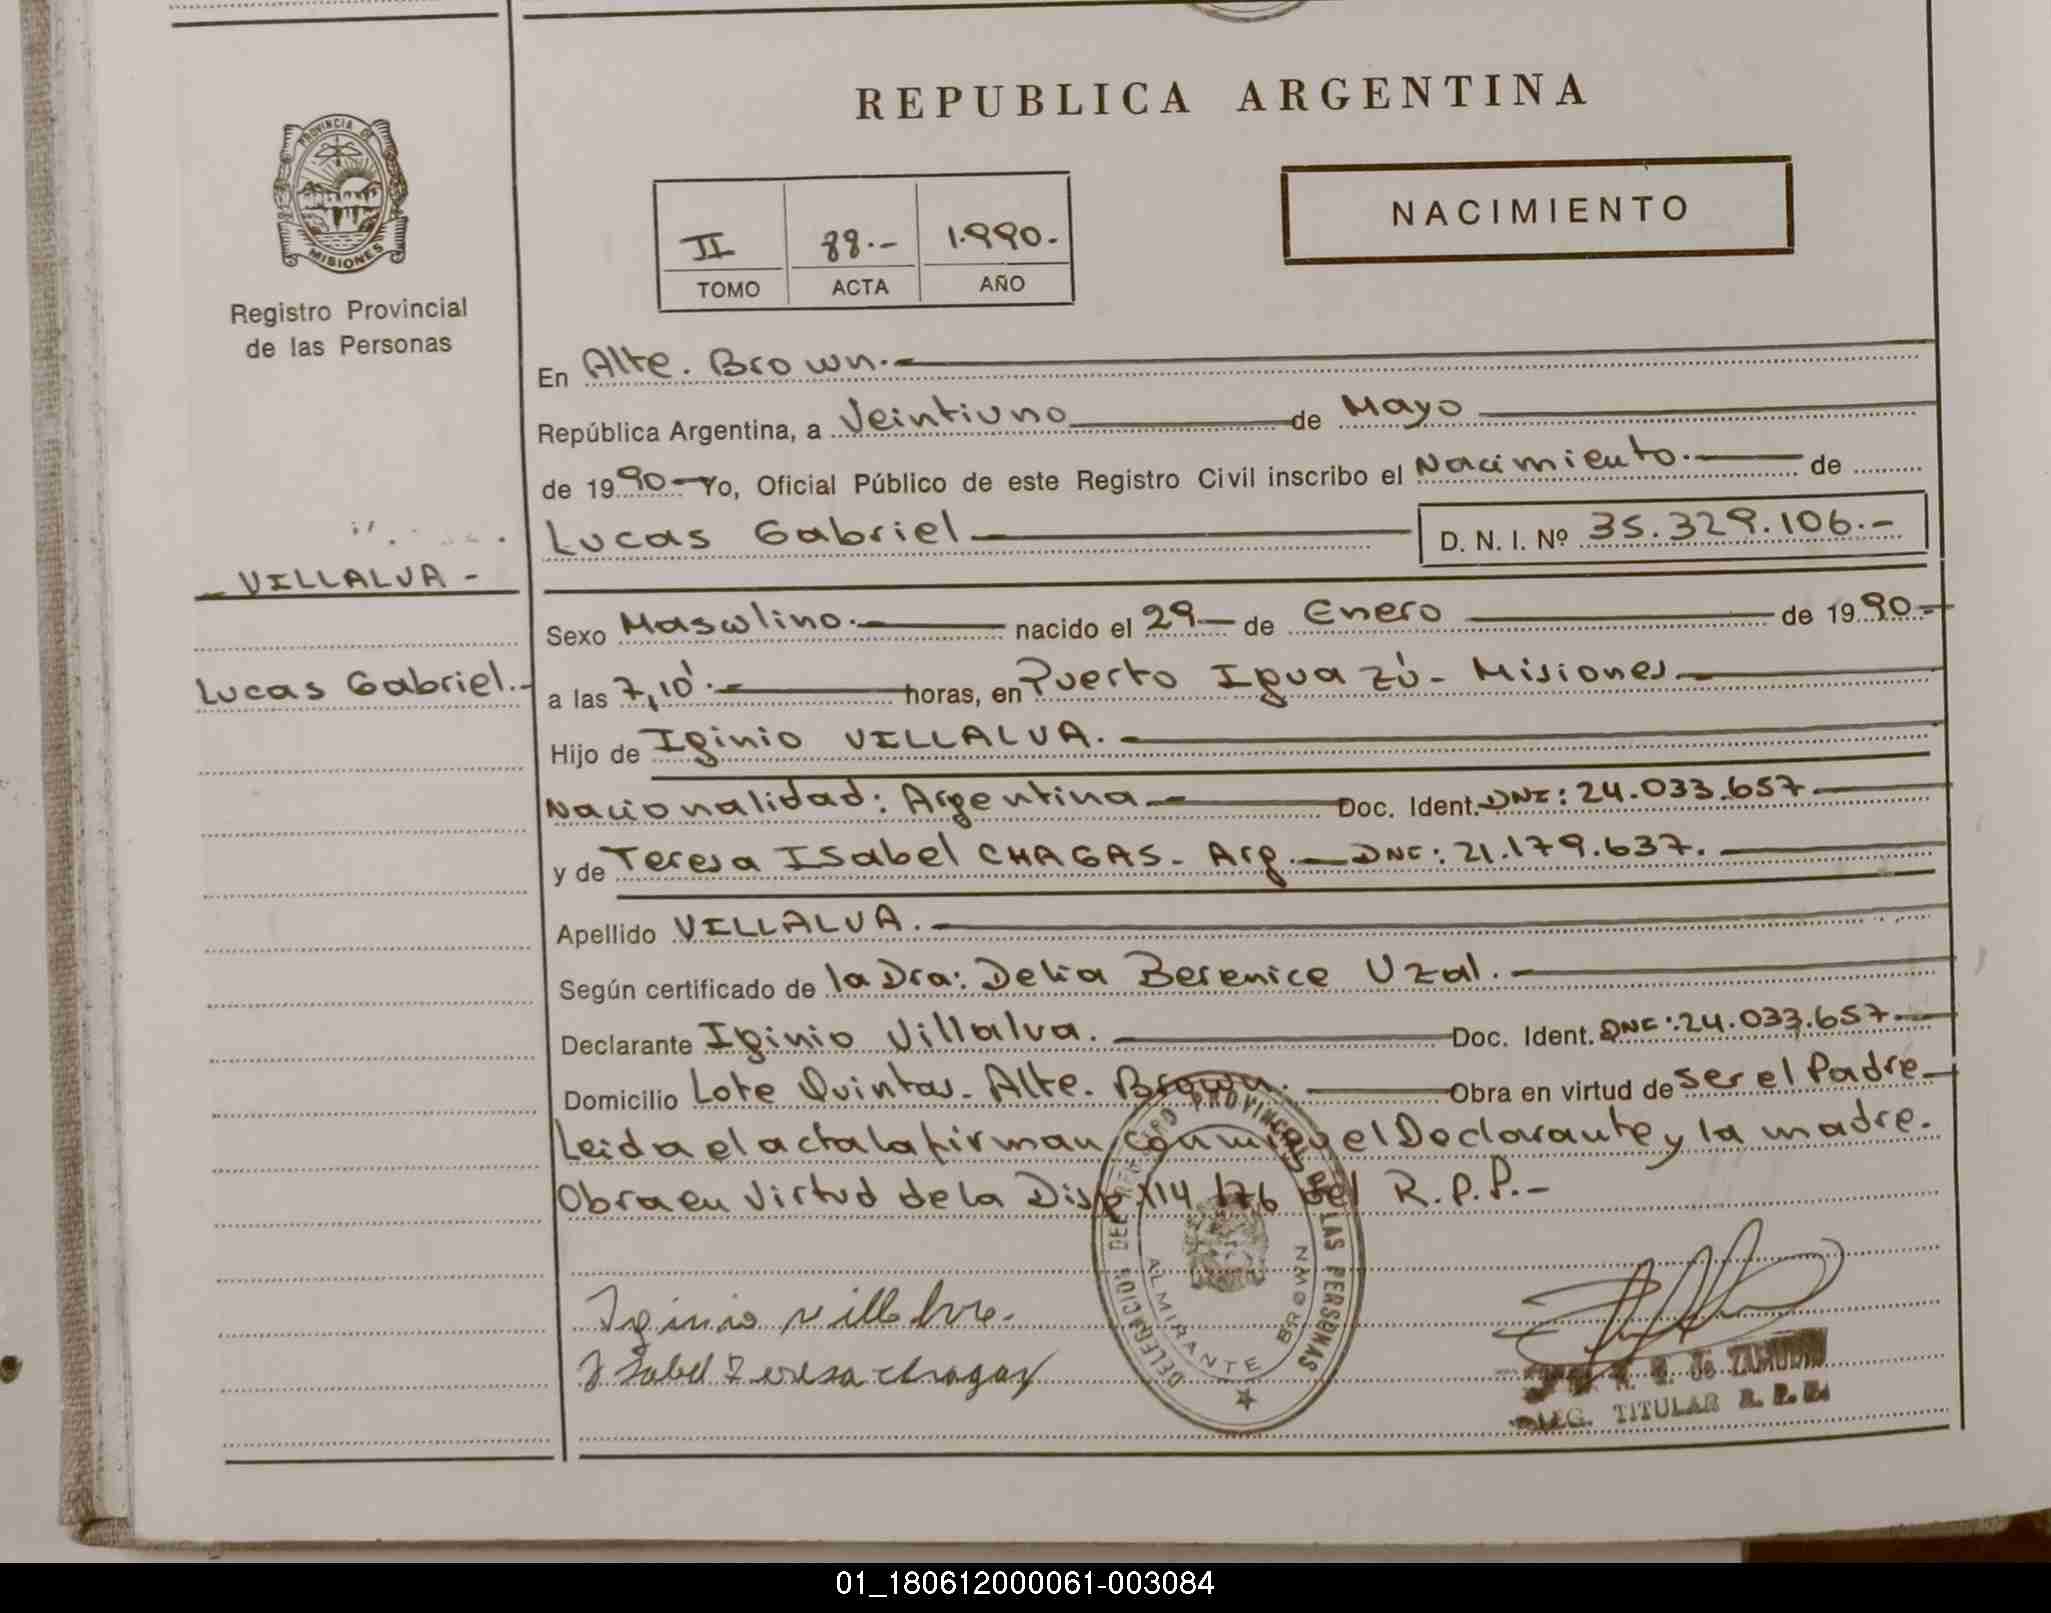 REPUBLICA ARGENTINA
PROVINCIA DE MISIONES
Registro Provincial
de las Personas
II 88.- 1.990.-
TOMO ACTA AÑO
NACIMIENTO
En Alte. Brown.-
República Argentina, a Veintiuno de Mayo
de 1990- Yo, Oficial Público de este Registro Civil inscribo el Nacimiento.- de
Lucas Gabriel D. N. I. Nº 35.329.106.-
- VILLALVA -
Sexo Masculino.- nacido el 29- de Enero de 1990.-
Lucas Gabriel.-
a las 7,10'.- horas, en Puerto Iguazú- Misiones
Hijo de Iginio VILLALVA.-
Nacionalidad: Argentina.- Doc. Ident. DNI: 24.033.657
y de Teresa Isabel CHAGAS- Arg.- DNI: 21.179.637.-
Apellido VILLALVA.-
Según certificado de la Dra: Delia Berenice Uzal.-
Declarante Iginio Villalva. Doc. Ident. DNI: 24.033.657-
Domicilio Lote Quintas- Alte. Brown. Obra en virtud de ser el Padre
Leida el acta la firman conmigo el Declarante y la madre.
Obra en virtud de la Disp 114/76 del R.P.P.-
Iginio Villalva.
Isabel Teresa chagas
DELEGACION DEL REGISTRO PROVINCIAL DE LAS PERSONAS
ALMIRANTE BROWN
de ZAMUDIO
TITULAR R. P. P.
01_180612000061-003084